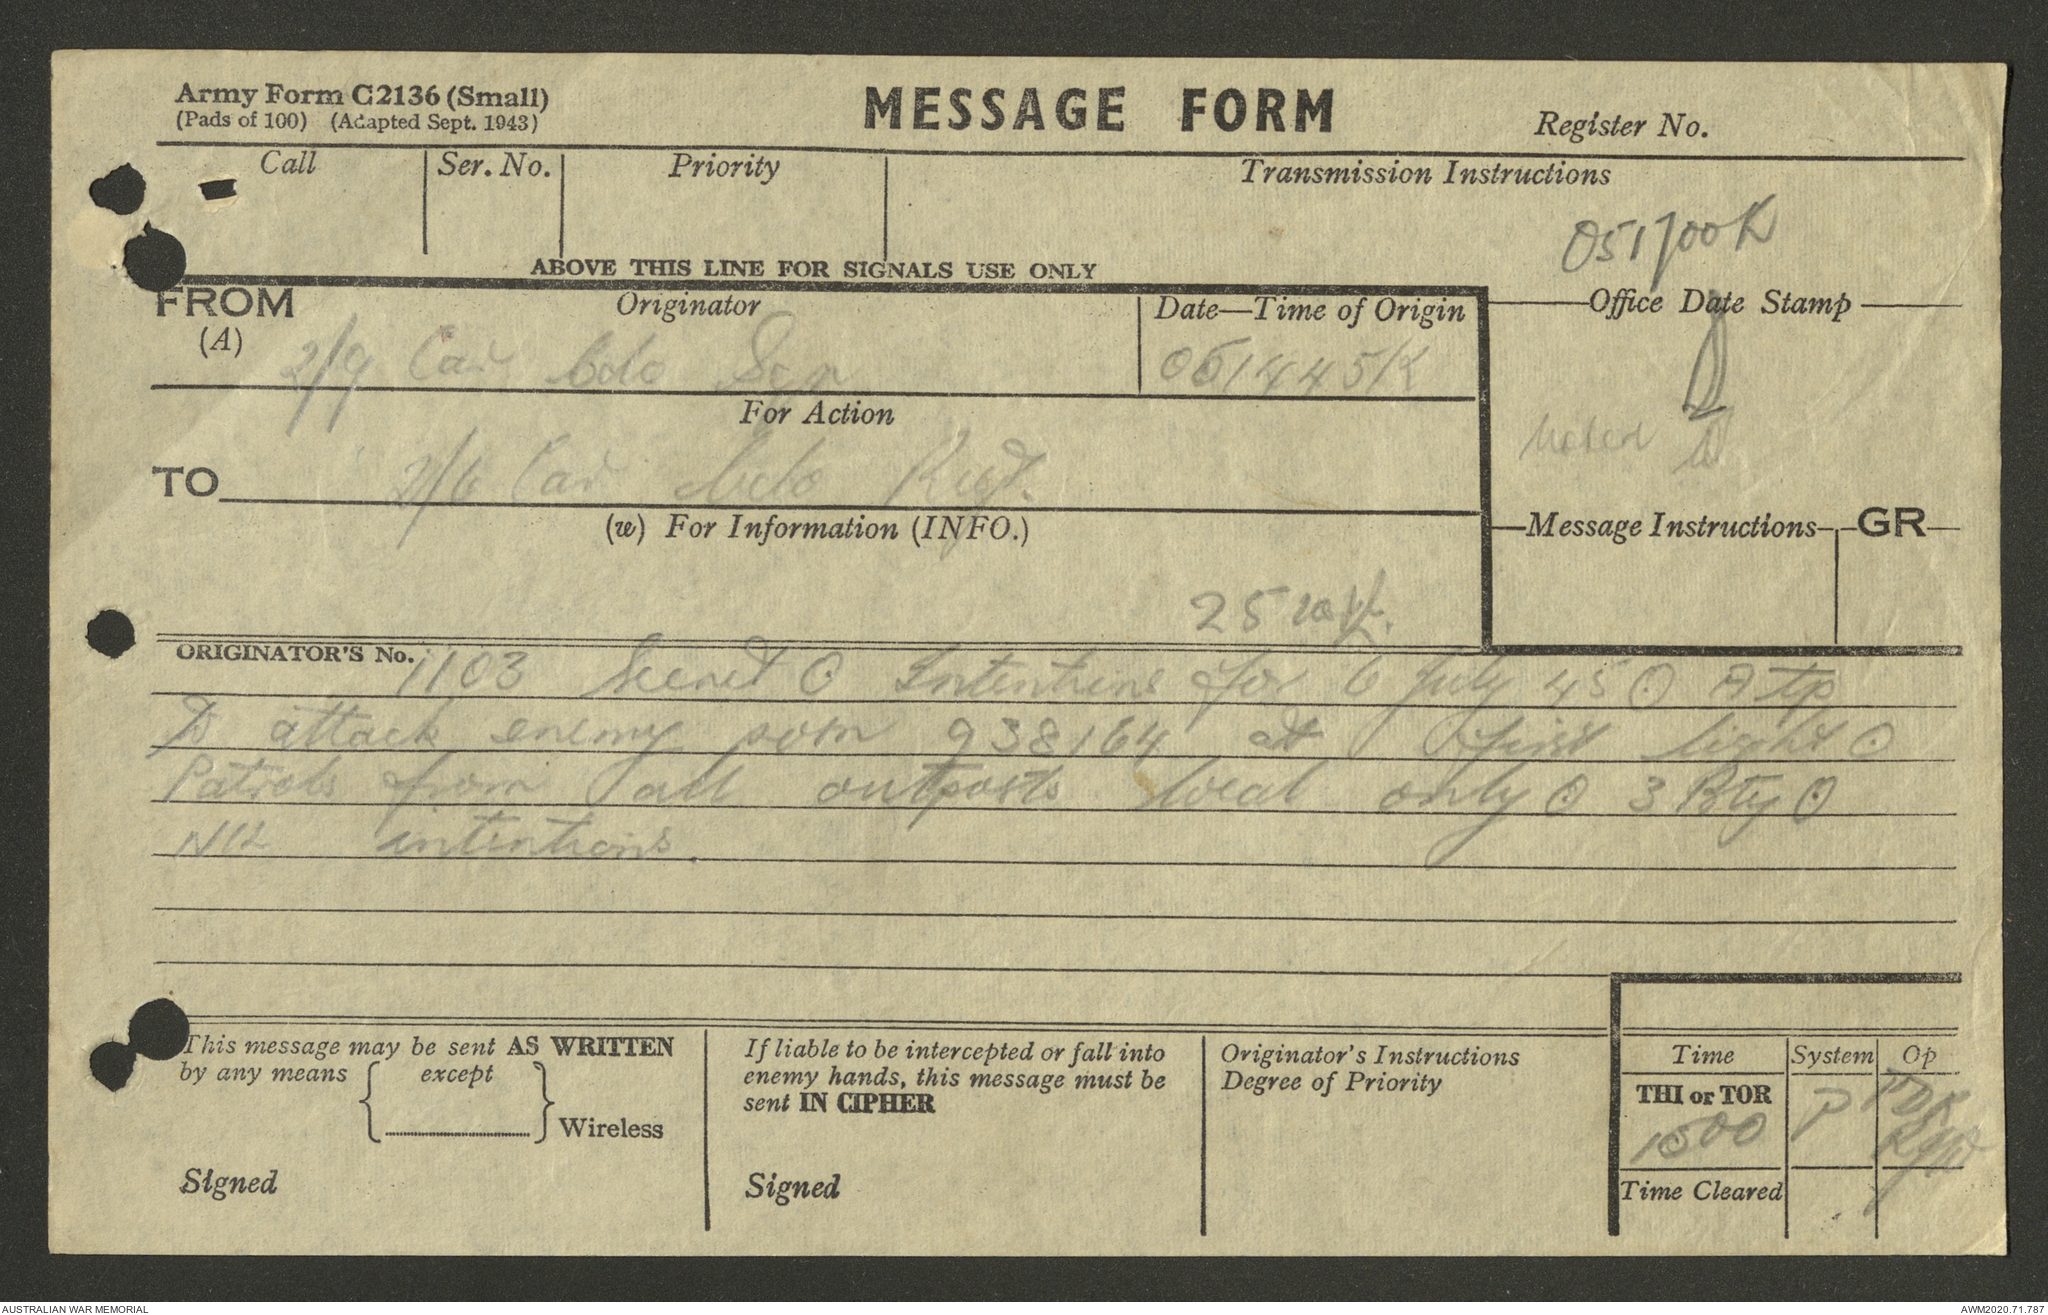 Army Form C2136 (Small)
(Pads of 100) (Adapted Sept. 1943)
MESSAGE FORM
Register No.
Call
Ser. No.
Priority
Transmission Instructions
051700K
ABOVE THIS LINE FOR SIGNALS USE ONLY
FROM
(A)
Originator
2/9 Cav Cdo Sqn
Date—Time of Origin
051445K
Office Date Stamp
For Action
TO
2/6 Cav Cdo Regt.
Noted
(w) For Information (INFO.)
Message Instructions
GR
25
ORIGINATOR'S No.
1103 Secret ⊙ Intentions for 6 July 45 ⊙ A tp
to attack enemy posn 938164 at first light ⊙
Patrols from all outposts local only ⊙ 3 Bty ⊙
NIL intentions.
This message may be sent AS WRITTEN
by any means { except }
Wireless
Signed
If liable to be intercepted or fall into
enemy hands, this message must be
sent IN CIPHER
Signed
Originator's Instructions
Degree of Priority
Time
System
Op
THI or TOR
1500
P
Time Cleared
AUSTRALIAN WAR MEMORIAL
AWM2020.71.787